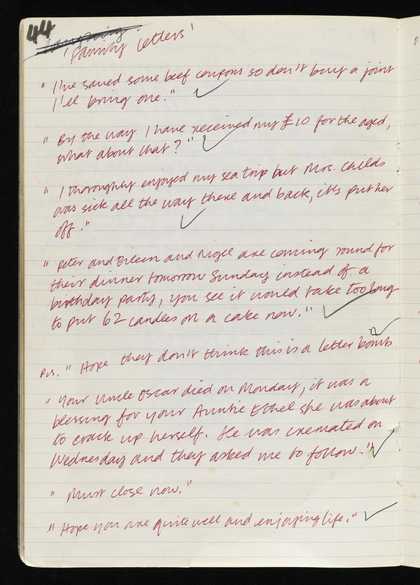 44
'Family Letters'
" I've saved some beef coupons so don't buy a joint
I'll bring one."
" By the way I have received my £10 for the aged,
what about that?"
" I thoroughly enjoyed my sea trip but Mrs. Childs
was sick all the way there and back, it's put her
off."
" Peter and Eileen and Nigel are coming round for
their dinner tomorrow Sunday instead of a
birthday party, you see it would take too long
to put 62 candles on a cake now."
P.S. " Hope they don't think this is a letter bomb
" Your Uncle Oscar died on Monday, it was a
blessing for your Auntie Ethel she was about
to crack up herself. He was cremated on
Wednesday and they asked me to follow."
" Must close now."
" Hope you are quite well and enjoying life."